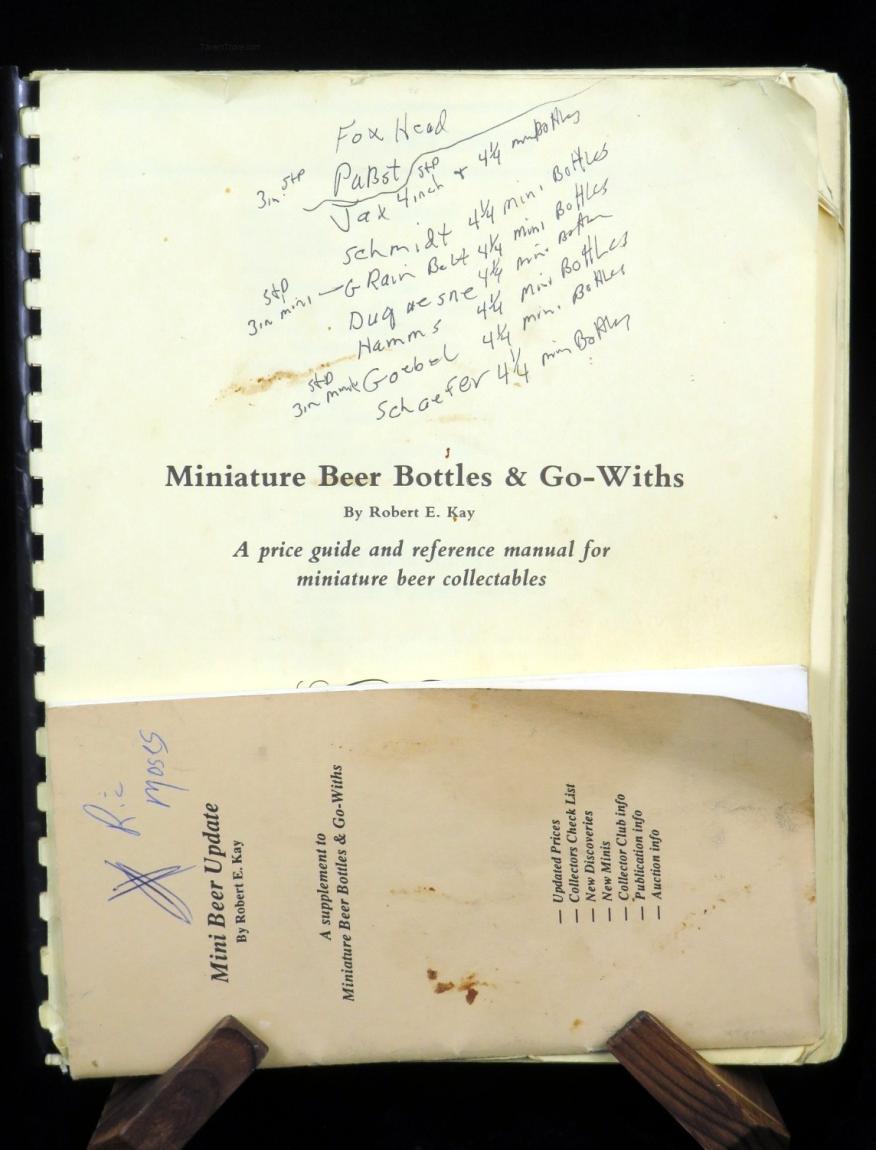 TavernTrove.com
Fox Head
3 in. StP Pabst
Jax 4 inch StP + 4 1/4 mini Bottles
Schmidt 4 1/4 mini Bottles
StP 3 in mini — GRain Belt 4 1/4 mini Bottles
Duquesne 4 1/4 mini Bottles
Hamms 4 1/4 mini Bottles
StP 3 in mini Goebel 4 1/4 mini. Bottles
Schaefer 4 1/4 mini Bottles
Miniature Beer Bottles & Go-Withs
By Robert E. Kay
A price guide and reference manual for
miniature beer collectables
Ric
Moses
Mini Beer Update
By Robert E. Kay
A supplement to
Miniature Beer Bottles & Go-Withs
— Updated Prices
— Collectors Check List
— New Discoveries
— New Minis
— Collector Club info
— Publication info
— Auction info